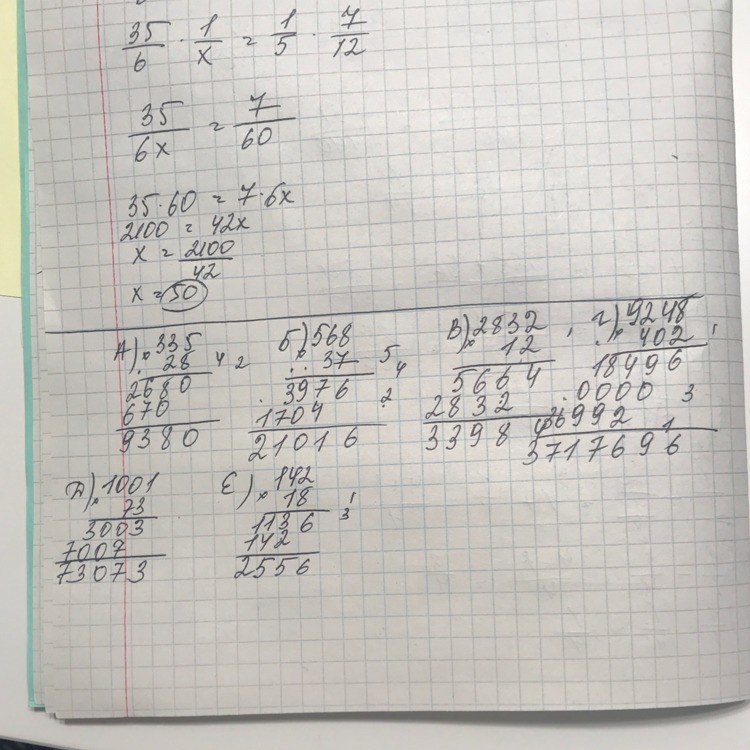 35/6 · 1/x = 1/5 · 7/12
35/6x = 7/60
35·60 = 7·6x
2100 = 42x
x = 2100/42
x = 50
А) ×335
28 4 2
2680
670
9380
Б) ×568
37 5 4
3976 2
1704
21016
В) ×2832
12
5664
2832
3398
г) ×9248
402 1
18496
0000 3
36992 1
3717696
Д) ×1001
73
3003
7007
73073
Е) ×142
18 1
1136 3
142
2556